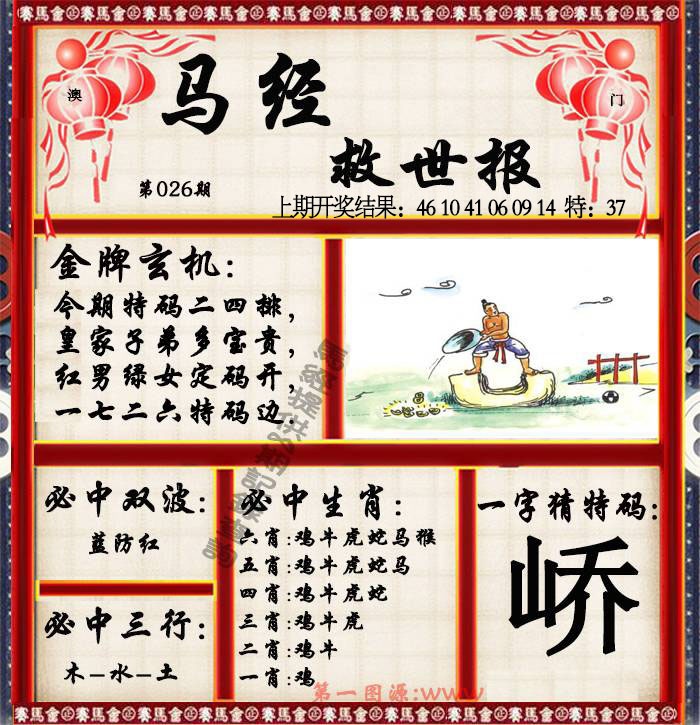 賽馬會 賽馬會 賽馬會 賽馬會 賽馬會 賽馬會 賽馬會 賽馬會 賽馬會 賽馬會
澳
门
马经
救世报
第026期
上期开奖结果：46 10 41 06 09 14 特：37
金牌玄机：
今期特码二四排，
皇家子弟多宝贵，
红男绿女定码开，
一七二六特码边.
必中双波：
蓝防红
必中三行：
木-水-土
必中生肖：
六肖:鸡牛虎蛇马猴
五肖:鸡牛虎蛇马
四肖:鸡牛虎蛇
三肖:鸡牛虎
二肖:鸡牛
一肖:鸡
一字猜特码：
峤
第一图源:www